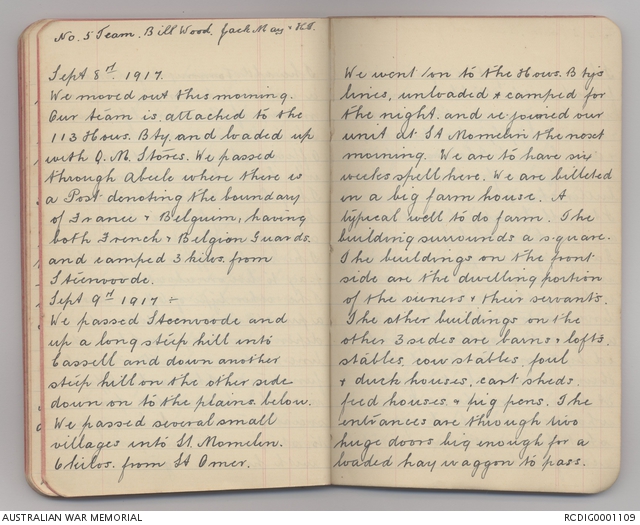 No. 5 Team. Bill Wood. Jack May &
Sept 8rd. 1917.
We moved out this morning.
Our team is attached to the
113 Hows. Bty. and loaded up
with Q. M. Stores. We passed
through Abeele where there is
a Post denoting the boundary
of France & Belgium, having
both French & Belgion Guards.
and camped 3 kilos. from
Steenvoode.
Sept 9rd 1917 ÷
We passed Steenvoode and
up a long steep hill into
Cassell and down another
steep hill on the other side
down on to the plains below.
We passed several small
villages into St. Momelin.
6 kilos. from St Omer.
We went on to the Hows. Btys
lines, unloaded & camped for
the night. and rejoined our
unit at St Momelin the next
morning. We are to have six
weeks spell here. We are billeted
in a big farm house. A
typical well to do farm. The
building surrounds a square.
The buildings on the front
side are the dwelling portion
of the owners & their servants.
The other buildings on the
other 3 sides are barns & lofts.
stables. cow stables. foul
& duck houses. cart sheds.
feed houses. & pig pens. The
entrances are through two
huge doors big enough for a
loaded hay waggon to pass.
AUSTRALIAN WAR MEMORIAL
RCDIG0001109